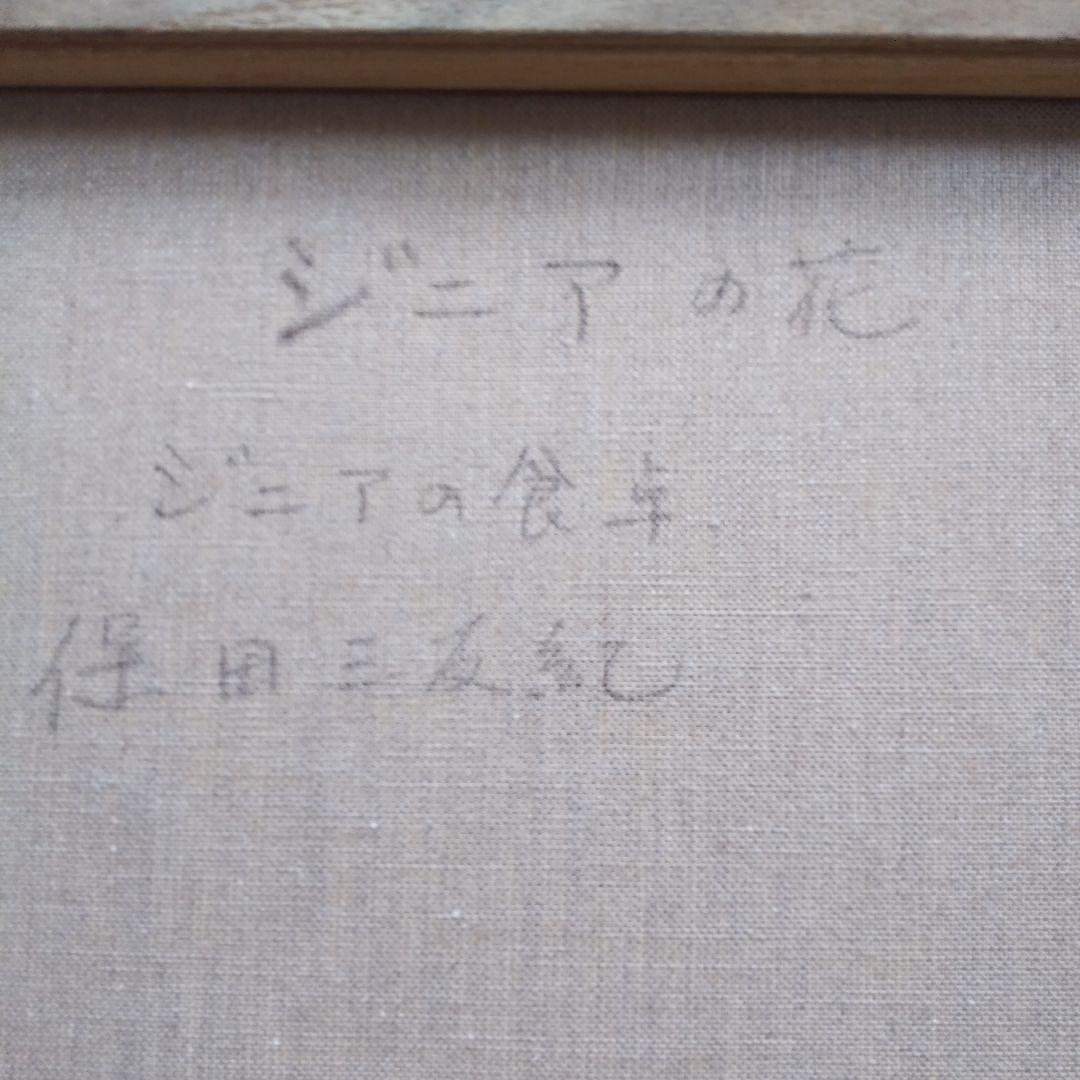 ジニアの花
ジニアの食卓
保田三友紀